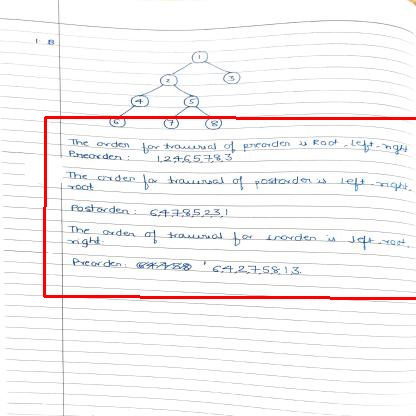 1 B
1
2 3
4 5
6 7 8
The order for traversal of preorder is Root-left-right
Preorder: 1,2,4,6,5,7,8,3
The order for traversal of postorder is left-right-
root
Postorder: 6,4,7,8,5,2,3,1
The order of traversal for inorder is left-root-
right.
Preorder: 6,4,2,7,5,8,1,3.